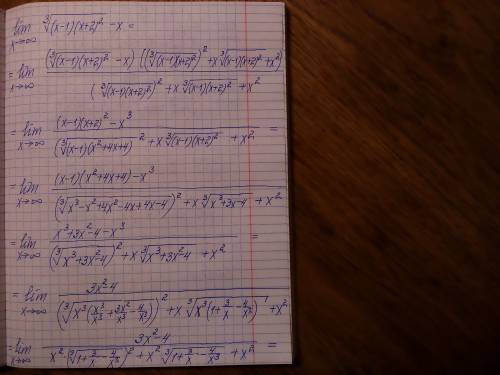 lim x→∞ ∛((x-1)(x+2)²) - x =
= lim x→∞ ((∛((x-1)(x+2)²) - x) ((∛((x-1)(x+2)²))² + x∛((x-1)(x+2)²) + x²)) / ((∛((x-1)(x+2)²))² + x∛((x-1)(x+2)²) + x²)
= lim x→∞ ((x-1)(x+2)² - x³) / ((∛((x-1)(x²+4x+4)))² + x∛((x-1)(x+2)²) + x²) =
= lim x→∞ ((x-1)(x²+4x+4) - x³) / ((∛(x³-x²+4x²-4x+4x-4))² + x∛(x³+3x-4) + x²)
= lim x→∞ (x³+3x²-4-x³) / ((∛(x³+3x²-4))² + x∛(x³+3x²-4) + x²) =
= lim x→∞ (3x²-4) / ((∛(x³(x³/x³+3x²/x³-4/x³)))² + x∛(x³(1+3/x-4/x³)) + x²)
= lim x→∞ (3x²-4) / (x²·(∛(1+3/x-4/x³))² + x²∛(1+3/x-4/x³) + x²) =